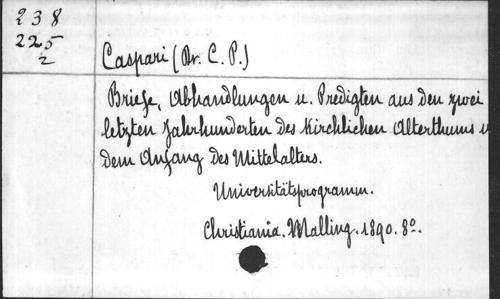 238
225
2
Caspari (Dr. C. P.)
Briefe, Abhandlungen u. Predigten aus den zwei
letzten Jahrhunderten des kirchlichen Alterthums u
dem Anfang des Mittelalters.
Universitätsprogramm.
Christiania. Malling. 1890. 8º.